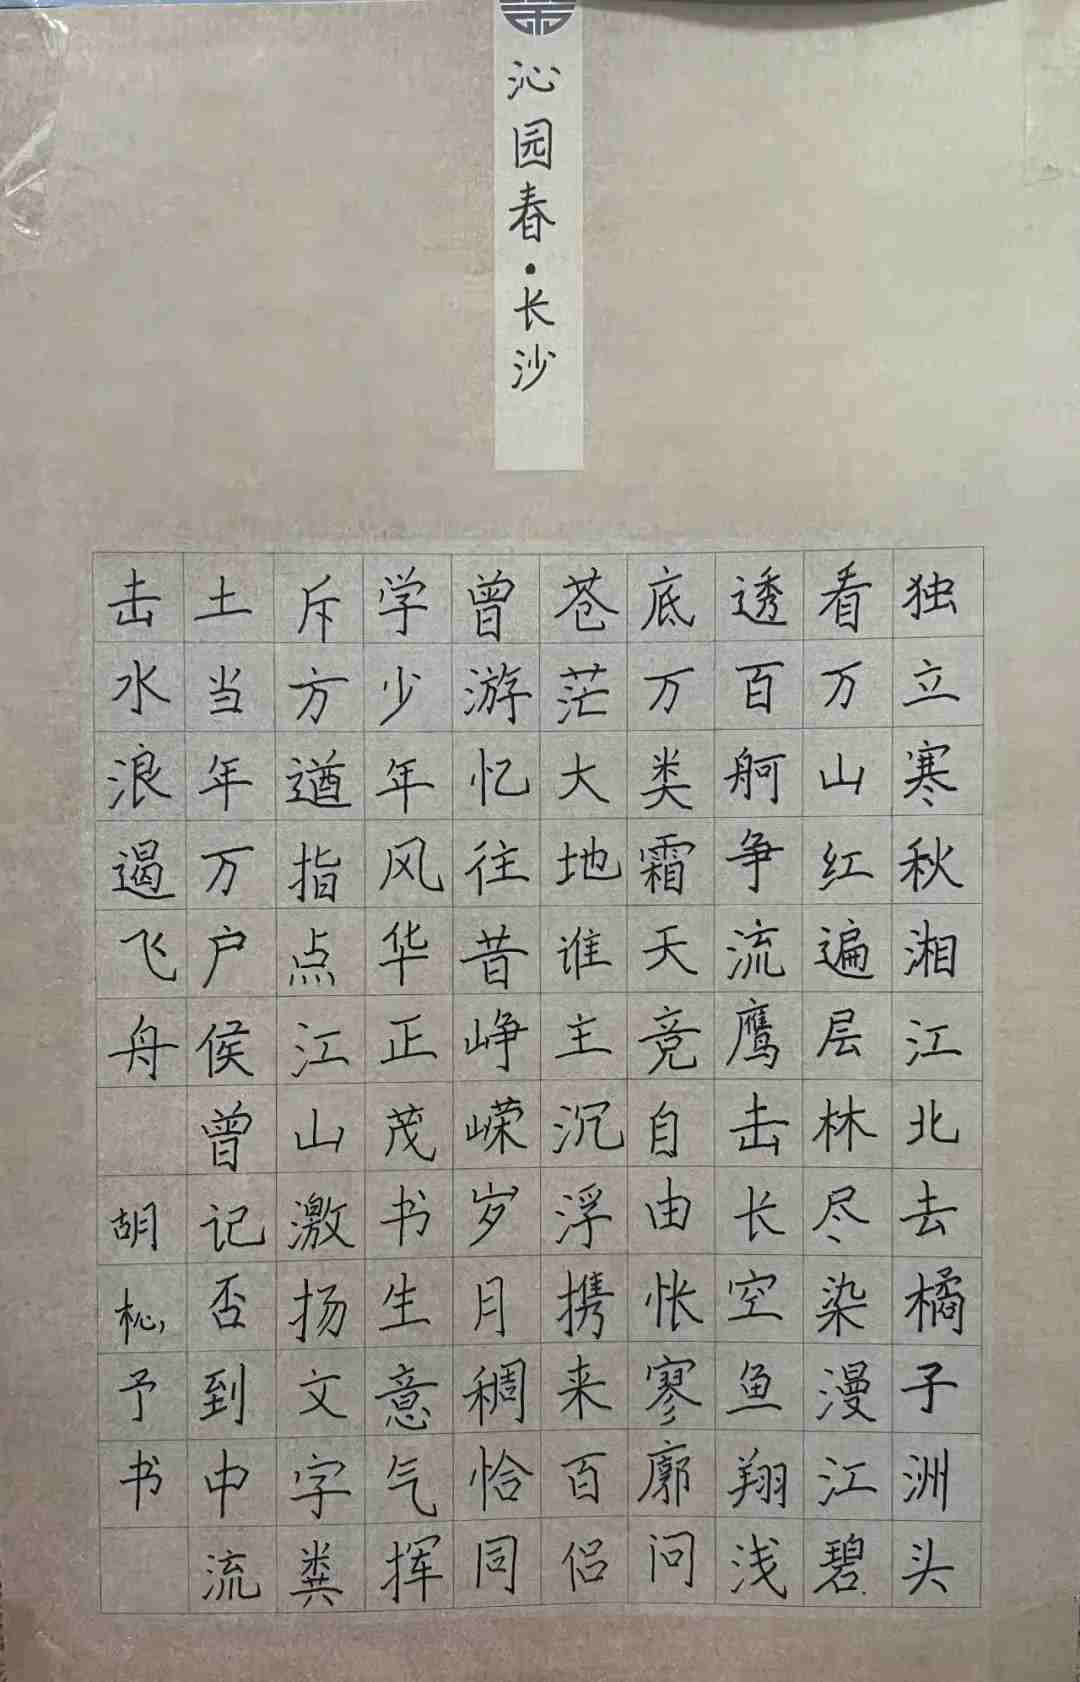 沁园春·长沙
独立寒秋湘江北去橘子洲头
看万山红遍层林尽染漫江碧
透百舸争流鹰击长空鱼翔浅
底万类霜天竞自由怅寥廓问
苍茫大地谁主沉浮携来百侣
曾游忆往昔峥嵘岁月稠恰同
学少年风华正茂书生意气挥
斥方遒指点江山激扬文字粪
土当年万户侯曾记否到中流
击水浪遏飞舟 胡杺予书